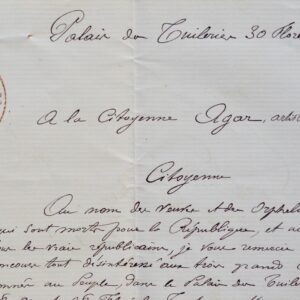 Palais des Tuileries 30 Flore
A la Citoyenne Agar, artis
Citoyenne
Au nom des veuves et des Orphel
qui sont morts pour la République, et au
les vrais républicains, je vous remercie
concours tout désintéressé aux trois grands
donnés au Peuple, dans le Palais des Tuil